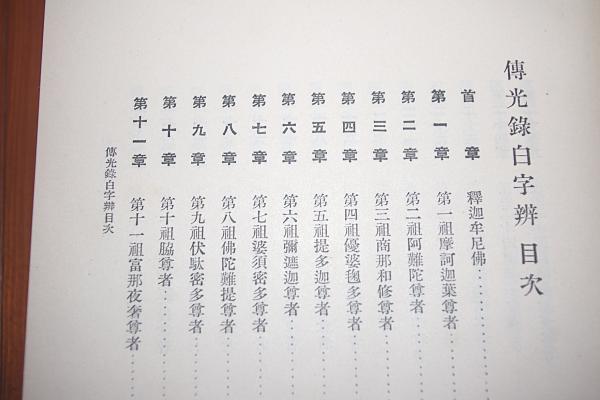 傳光錄白字辨 目次
首章 釋迦牟尼佛
第一章 第一祖摩訶迦葉尊者
第二章 第二祖阿難陀尊者
第三章 第三祖商那和修尊者
第四章 第四祖優婆毱多尊者
第五章 第五祖提多迦尊者
第六章 第六祖彌遮迦尊者
第七章 第七祖婆須密多尊者
第八章 第八祖佛陀難提尊者
第九章 第九祖伏馱密多尊者
第十章 第十祖脇尊者
第十一章 第十一祖富那夜奢尊者
傳光錄白字辨目次